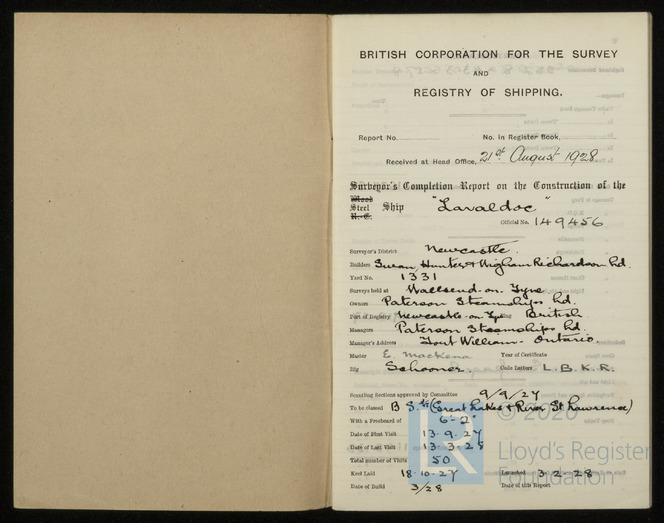 BRITISH CORPORATION FOR THE SURVEY
AND
REGISTRY OF SHIPPING.
Report No. No. in Register Book,
Received at Head Office, 21st August 1928
Surveyor's Completion Report on the Construction of the
Wood
Steel Ship "Lavaldoc"
R.-C.
Official No. 149456
Surveyor's District Newcastle.
Builders Swan, Hunter & Wigham Richardson Ld.
Yard No. 1331
Surveys held at Wallsend-on-Tyne
Owners Paterson Steamships Ld.
Port of Registry Newcastle-on-Tyne British
Managers Paterson Steamships Ld.
Manager's Address Fort William - Ontario.
Master E. Mackena Year of Certificate
Rig Schooner. Code Letters L.B.K.R.
Scantling Sections approved by Committee 9/9/27
To be classed B.S.* (Great Lakes & River St Lawrence)
With a Freeboard of 6'-2"
Date of First Visit 13.9.27
Date of Last Visit 13-3-28
Total number of Visits 50
Keel Laid 18-10-27 Launched 3-2-28
Date of Build 3/28 Date of this Report
© 2020
Lloyd's Register
Foundation
LR